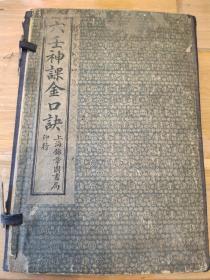 六壬神課金口訣
上海錦章圖書局
印行